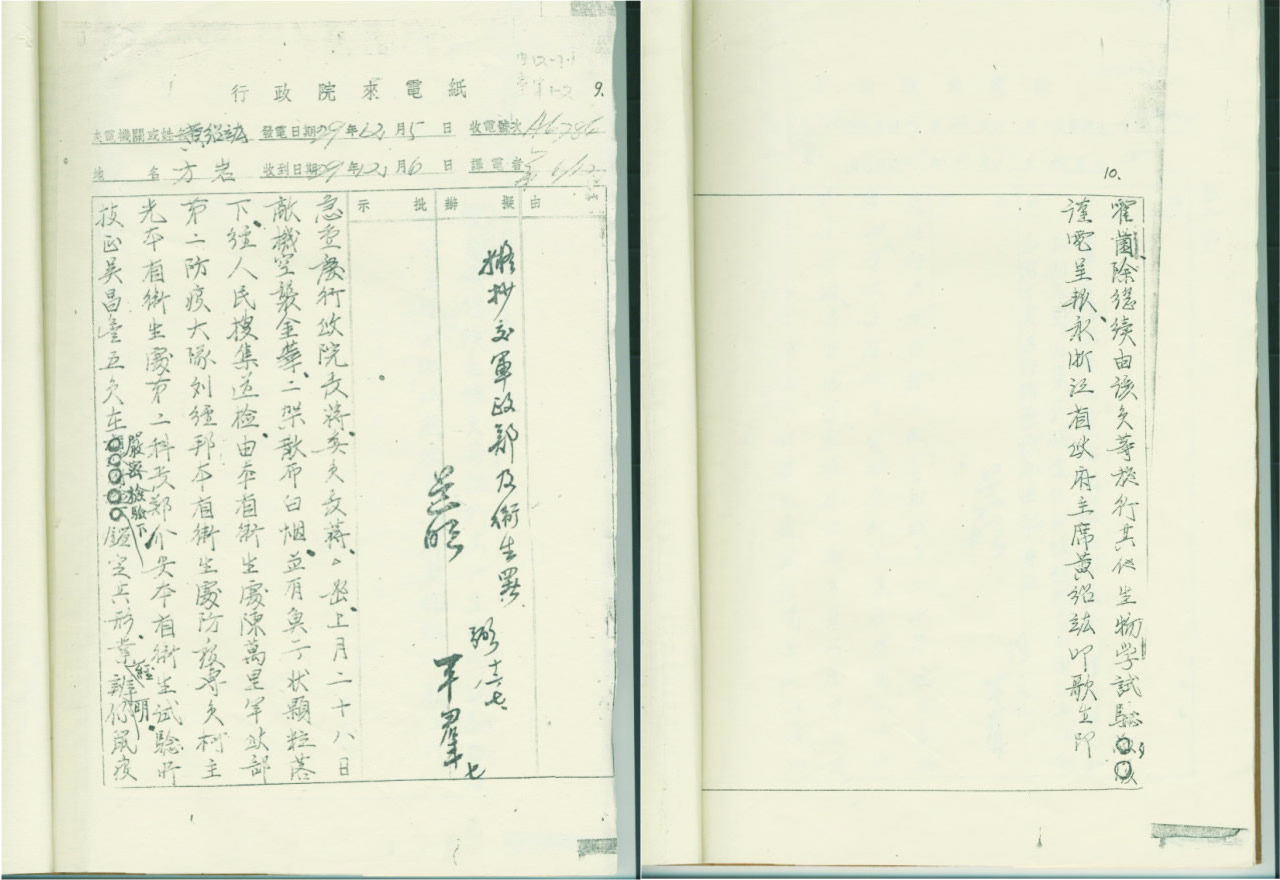 9.
行政院來電紙
來電機關或姓名 黃紹竑 發電日期 29年12月5日 收電號次
地名 方岩 收到日期 29年12月6日 譯電者 6/12
由
擬辦
批示
擬抄交軍政部及衛生署
十二、七
平羣 七
急重慶行政院長蔣委員長蔣。密、上月二十八日
敵機空襲金華、二架散布白烟、並有魚子狀顆粒落
下、經人民搜集送檢、由本省衛生處陳萬里軍政部
第二防疫大隊劉經邦本省衛生處防疫專員柯主
光本省衛生處第二科長鄭介安本省衛生試驗所
技正吳昌豊五員在
嚴密檢驗下
鑑定其形、業
經
辨
明、
係鼠疫
10.
霍菌、除繼續由該員等施行其他生物學試驗
謹電呈報、永浙江省政府主席黃紹竑叩歌生印